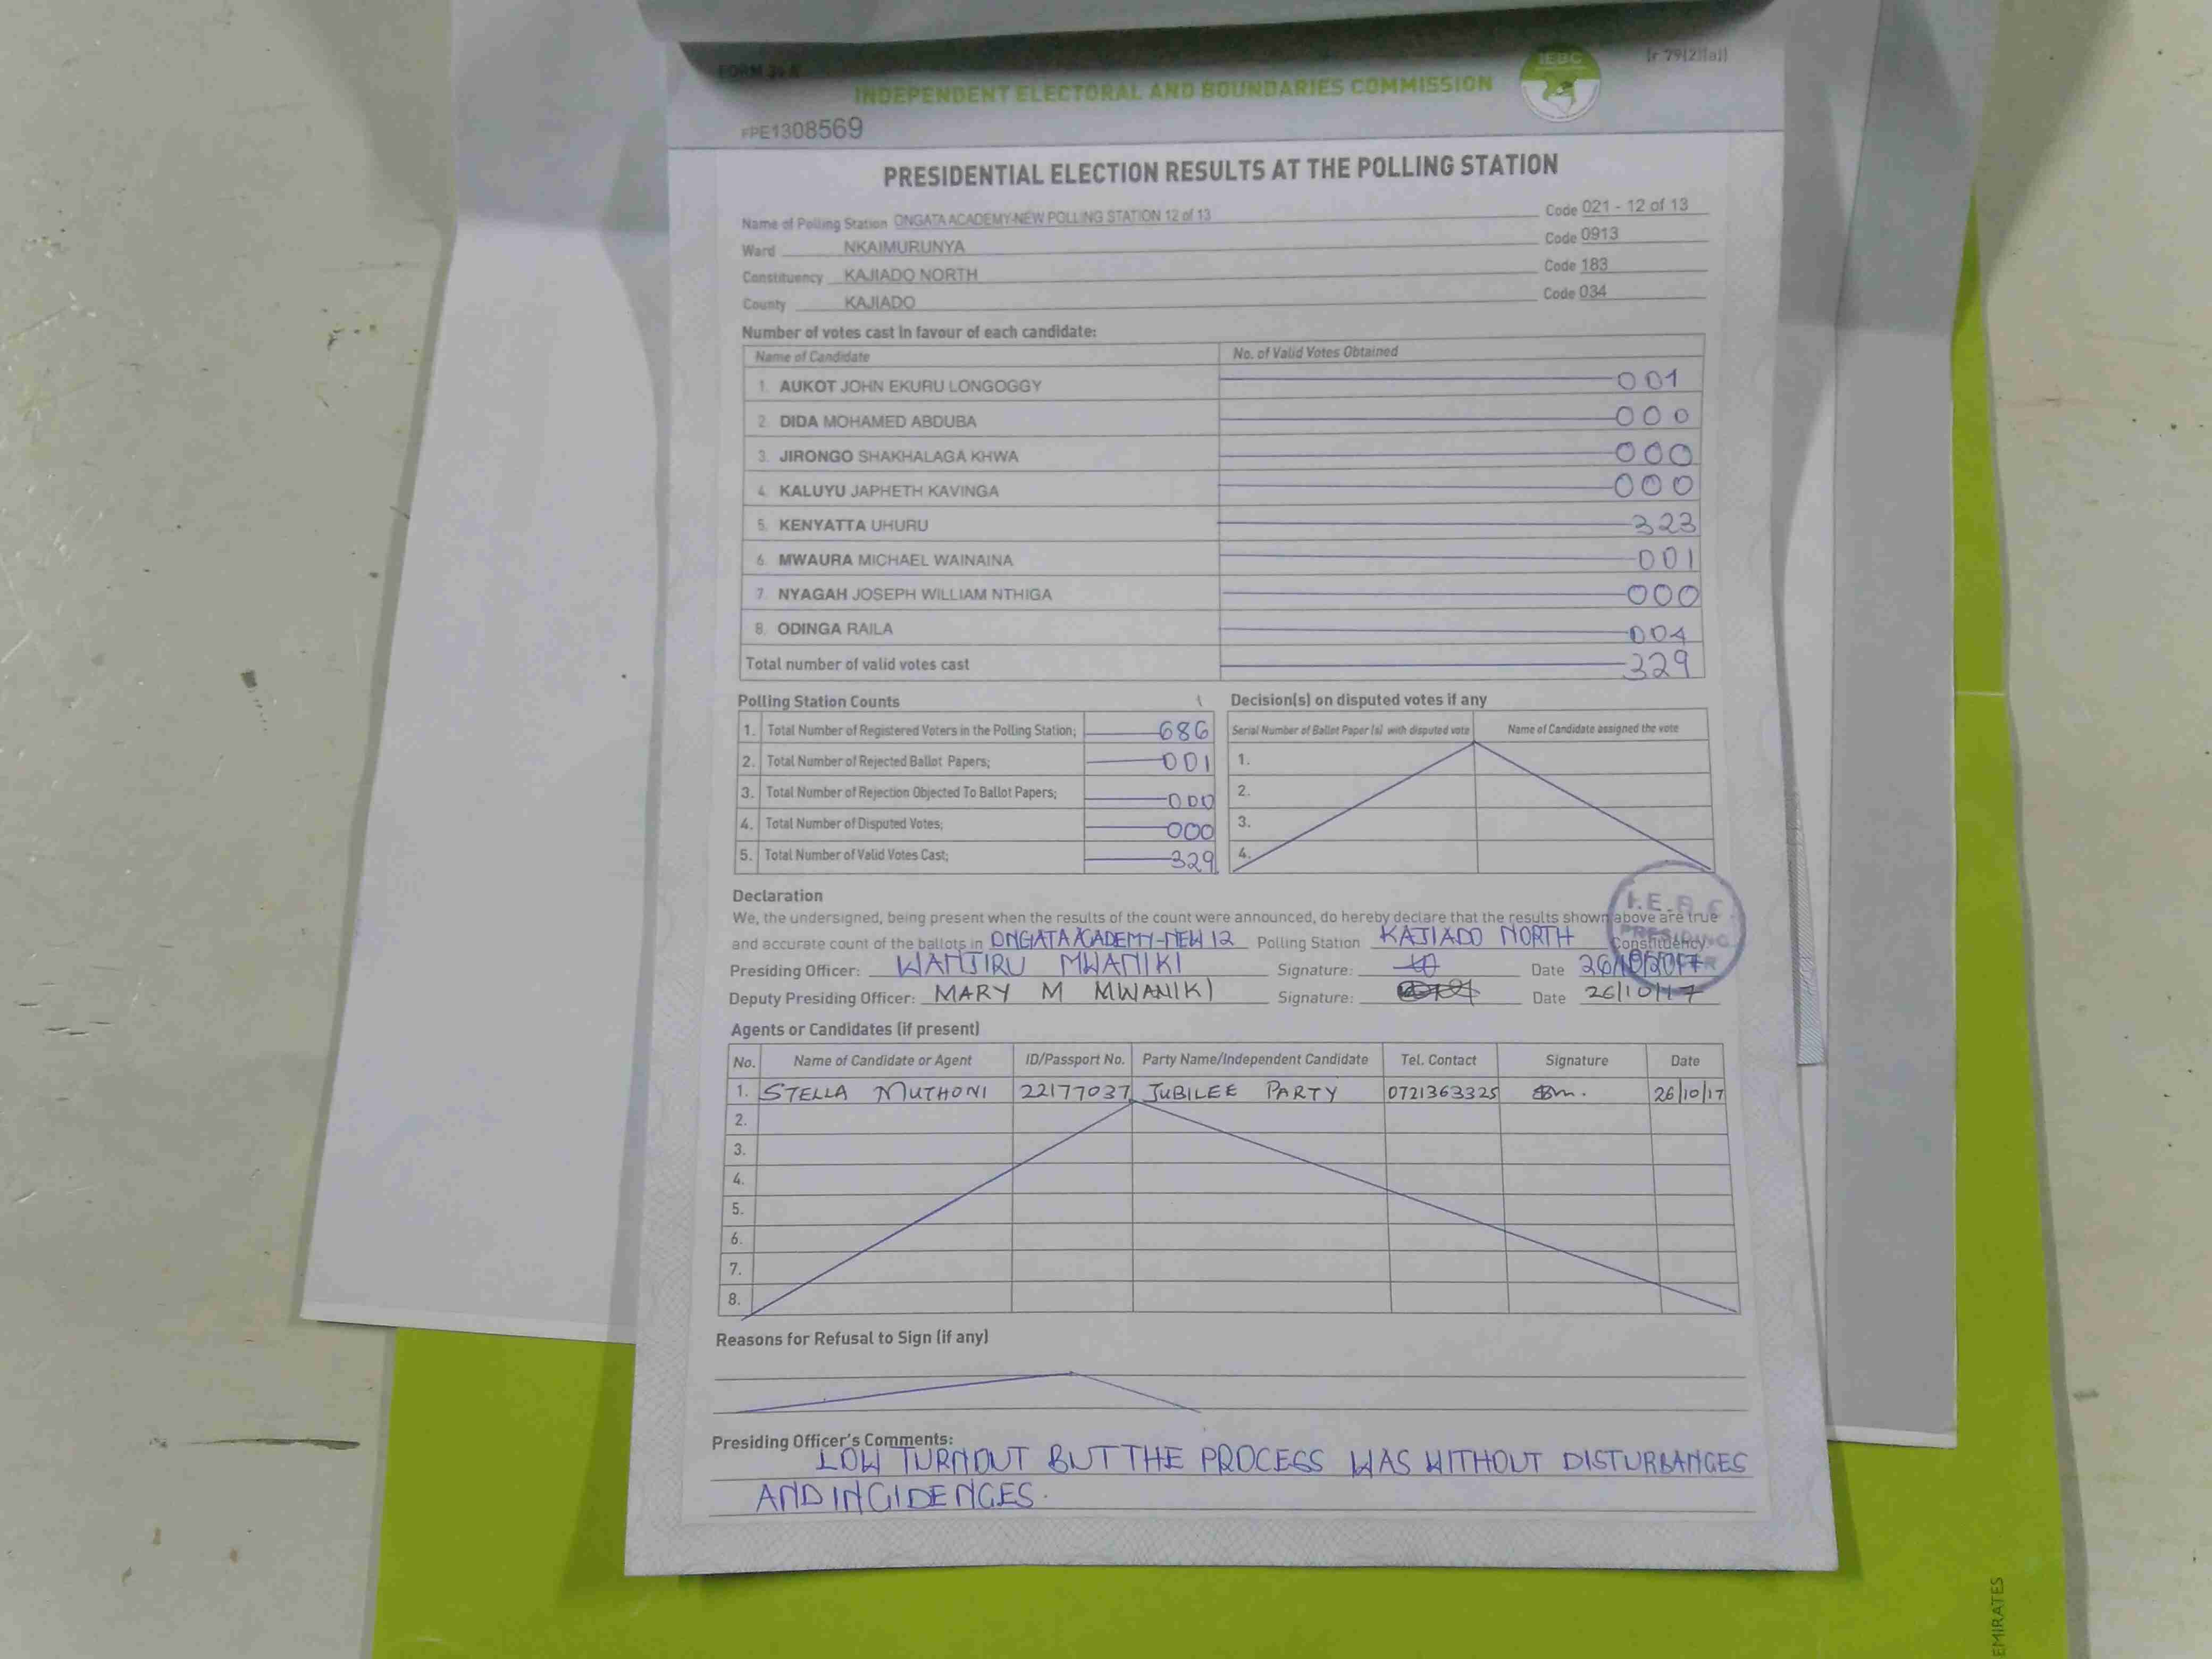 FORM 34 A
[r 79(2)(a)]
IEBC
INDEPENDENT ELECTORAL AND BOUNDARIES COMMISSION
FPE1308569
PRESIDENTIAL ELECTION RESULTS AT THE POLLING STATION
Name of Polling Station ONGATA ACADEMY-NEW POLLING STATION 12 of 13 Code 021 - 12 of 13
Ward NKAIMURUNYA Code 0913
Constituency KAJIADO NORTH Code 183
County KAJIADO Code 034
Number of votes cast in favour of each candidate:
Name of Candidate No. of Valid Votes Obtained
1. AUKOT JOHN EKURU LONGOGGY 001
2. DIDA MOHAMED ABDUBA 000
3. JIRONGO SHAKHALAGA KHWA 000
4. KALUYU JAPHETH KAVINGA 000
5. KENYATTA UHURU 323
6. MWAURA MICHAEL WAINAINA 001
7. NYAGAH JOSEPH WILLIAM NTHIGA 000
8. ODINGA RAILA 004
Total number of valid votes cast 329
Polling Station Counts
1. Total Number of Registered Voters in the Polling Station; 686
2. Total Number of Rejected Ballot Papers; 001
3. Total Number of Rejection Objected To Ballot Papers; 000
4. Total Number of Disputed Votes; 000
5. Total Number of Valid Votes Cast; 329
Decision(s) on disputed votes if any
Serial Number of Ballot Paper (s) with disputed vote Name of Candidate assigned the vote
1.
2.
3.
4.
Declaration
We, the undersigned, being present when the results of the count were announced, do hereby declare that the results shown above are true
and accurate count of the ballots in ONGATA ACADEMY-NEW 12 Polling Station KAJIADO NORTH Constituency.
Presiding Officer: WANJIRU MWANIKI Signature: Date 26/10/2017
Deputy Presiding Officer: MARY M MWANIKI Signature: Date 26/10/17
I.E.B.C
PRESIDING
Agents or Candidates (if present)
No. Name of Candidate or Agent ID/Passport No. Party Name/Independent Candidate Tel. Contact Signature Date
1. STELLA MUTHONI 22177037 JUBILEE PARTY 0721363325 26/10/17
2.
3.
4.
5.
6.
7.
8.
Reasons for Refusal to Sign (if any)
Presiding Officer's Comments:
LOW TURNOUT BUT THE PROCESS WAS WITHOUT DISTURBANCES
AND INCIDENCES.
EMIRATES